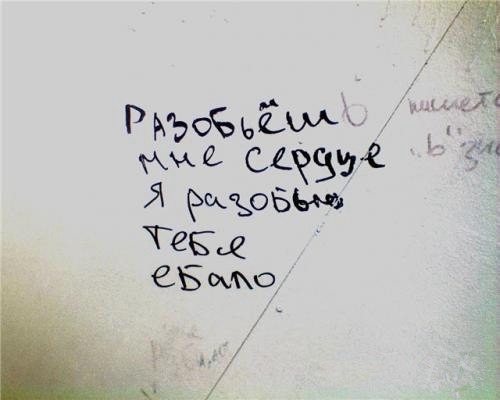 РАЗОБЬЁШЬ
мне сердце
Я разобью
тебе
ебало
"Ь"